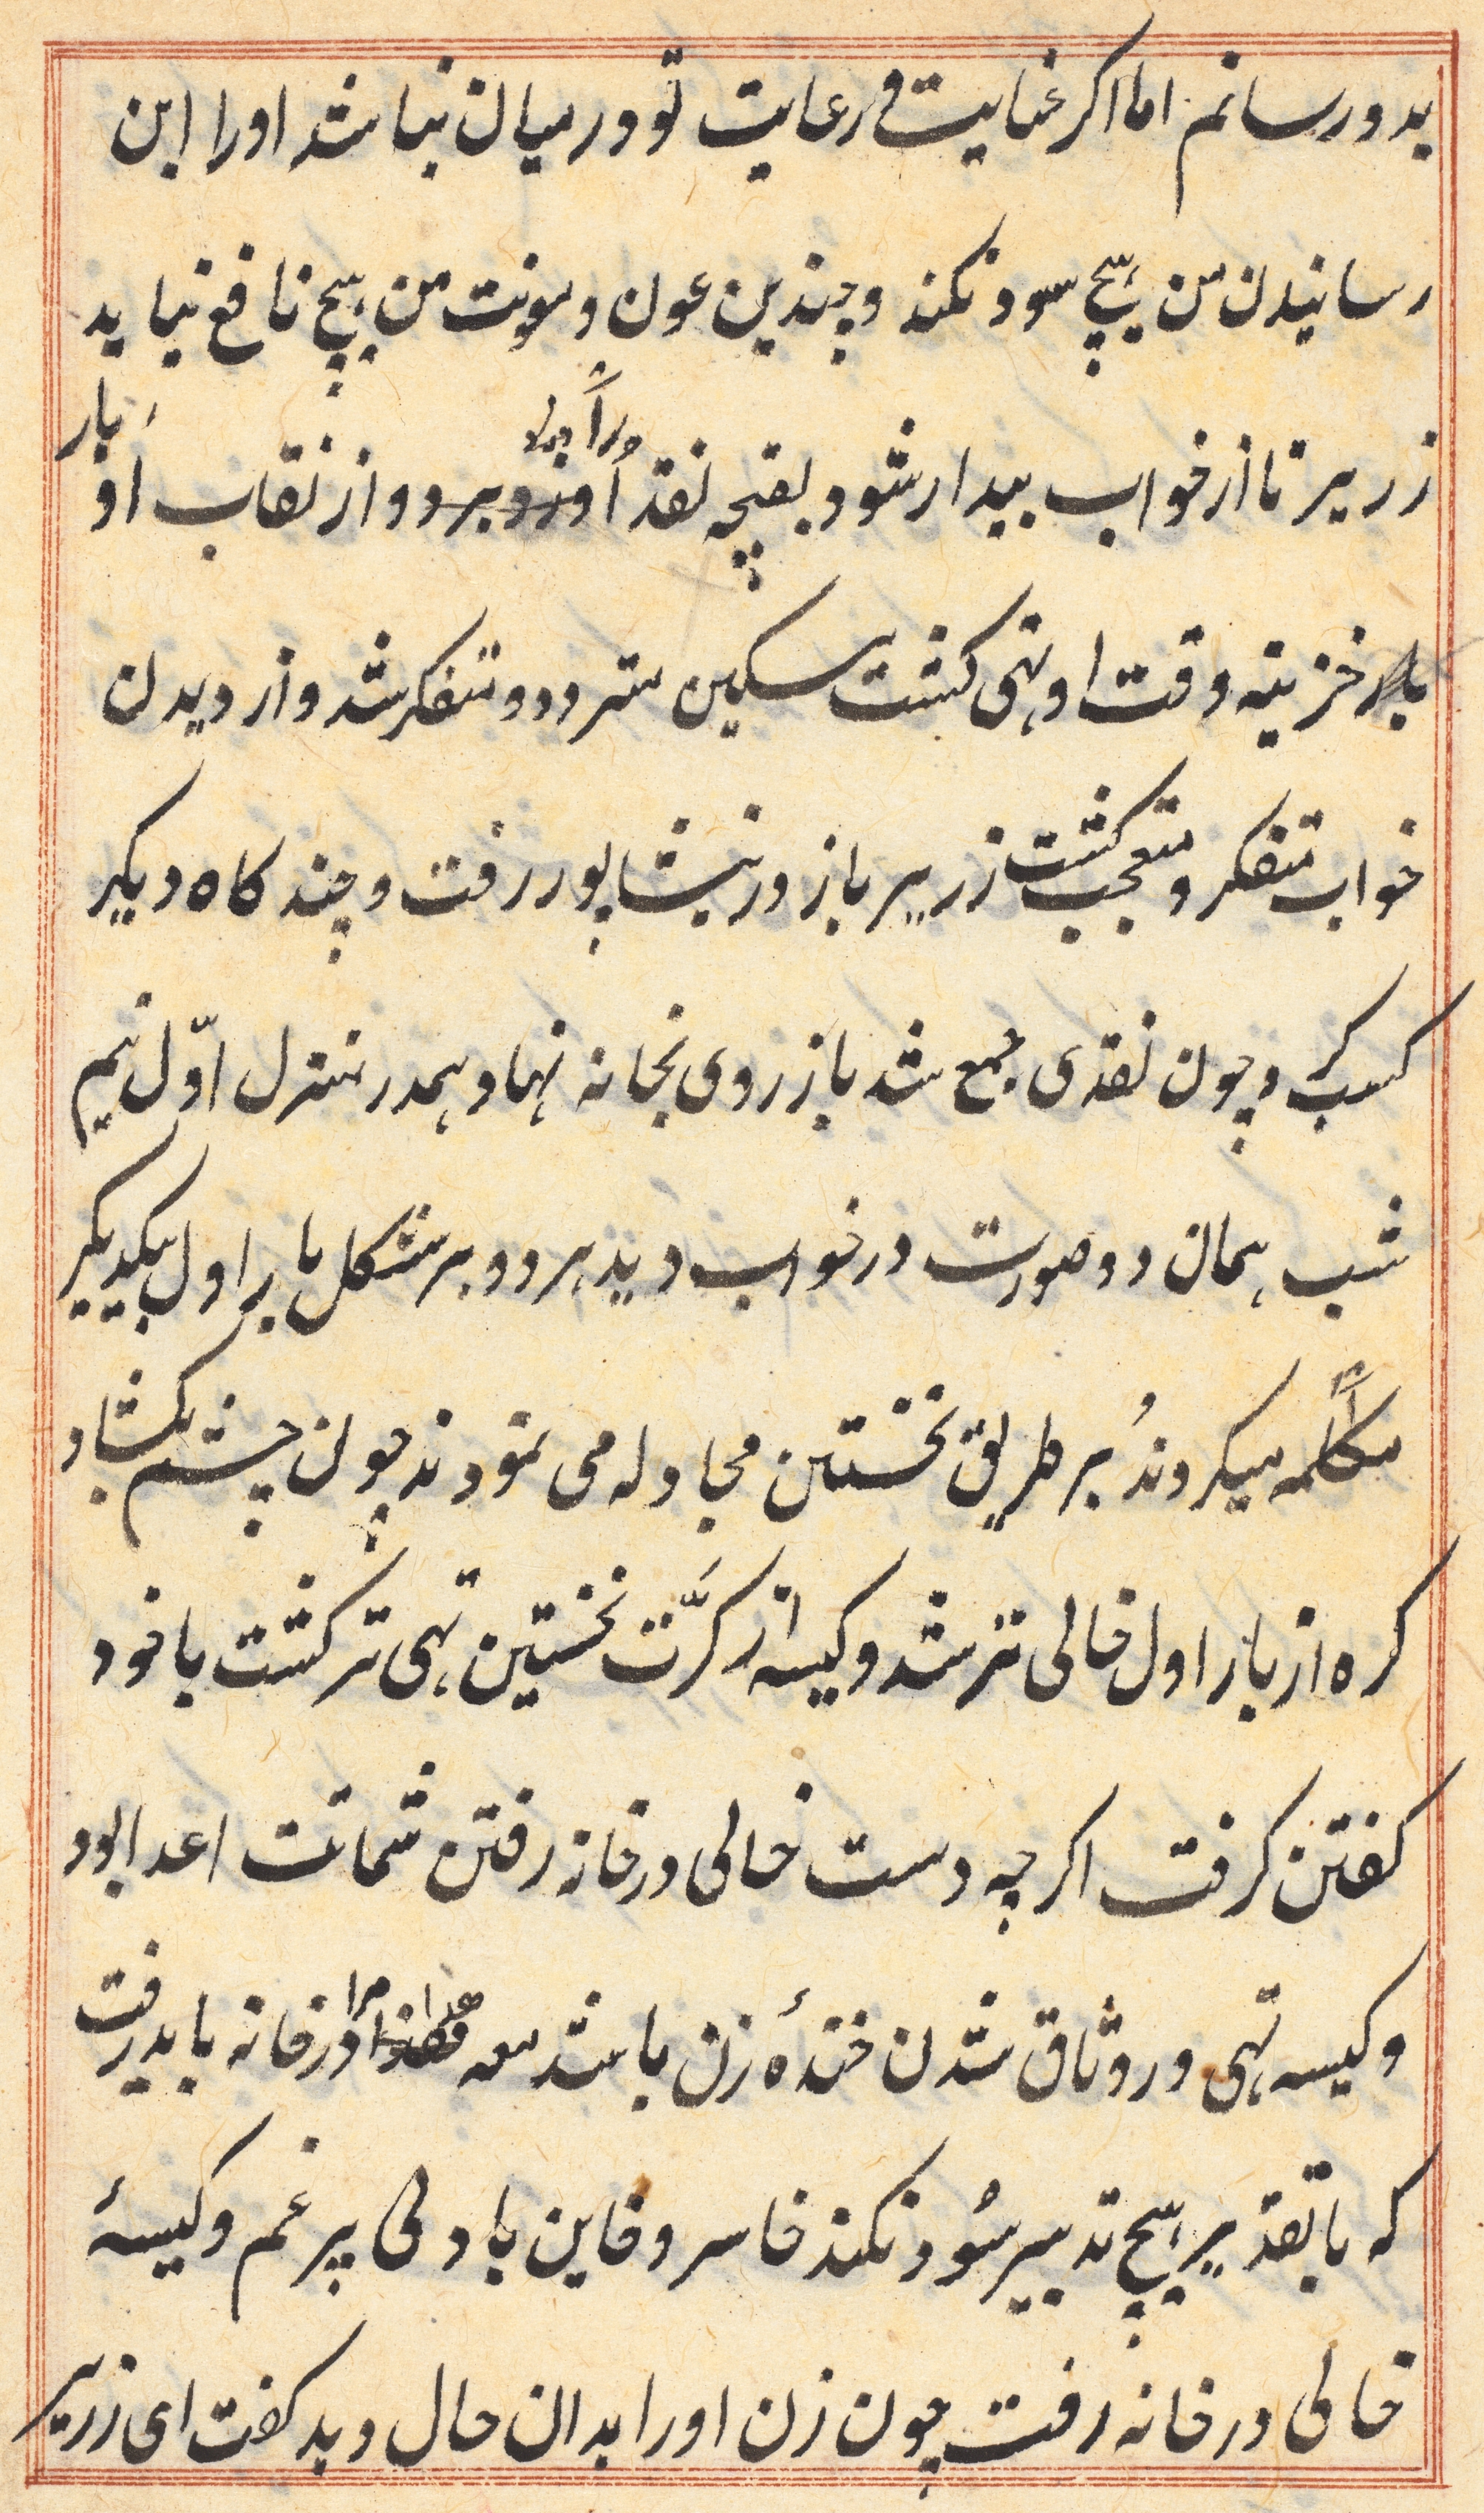 بدو رسانم اما اکر عنایت و رعایت تو در میان نباشد او را این
رسانیدن من هیچ سود نکند و چندین عون و مونت من هیچ نافع نیاید
زریر تا از خواب بیدار شود بقچه نقد او را و از نقاب او بار
خزینه وقت او تهی کشت مسکین متردد و متفکر شد و از دیدن
خواب متفکر و متعجب کشت زریر باز در نیشاپور رفت و چند کاه دیکر
کسب کرد چون نقدی جمع شد باز روی بخانه نهاد و همدر منزل اوّل نیم
شب همان دو صورت در خواب دید هر دو بر شکل بار اول بیکدیکر
مکالمه میکردند بر طریق نخستین مجادله می نمودند چون چشم بکشاد
کره از بار اول خالی تر شد و کیسه از کرّت نخستین تهی تر کشت با خود
کفتن کرفت اکرچه دست خالی در خانه رفتن شماتت اعدا بود
و کیسه تهی در وثاق شدن خندهٔ زن باشد مع هذا مرا در خانه باید رفت
که با تقدیر هیچ تدبیر سود نکند خاسر و خاین با دلی پر غم و کیسهٔ
خالی در خانه رفت چون زن او را بدان حال دید کفت ای زریر